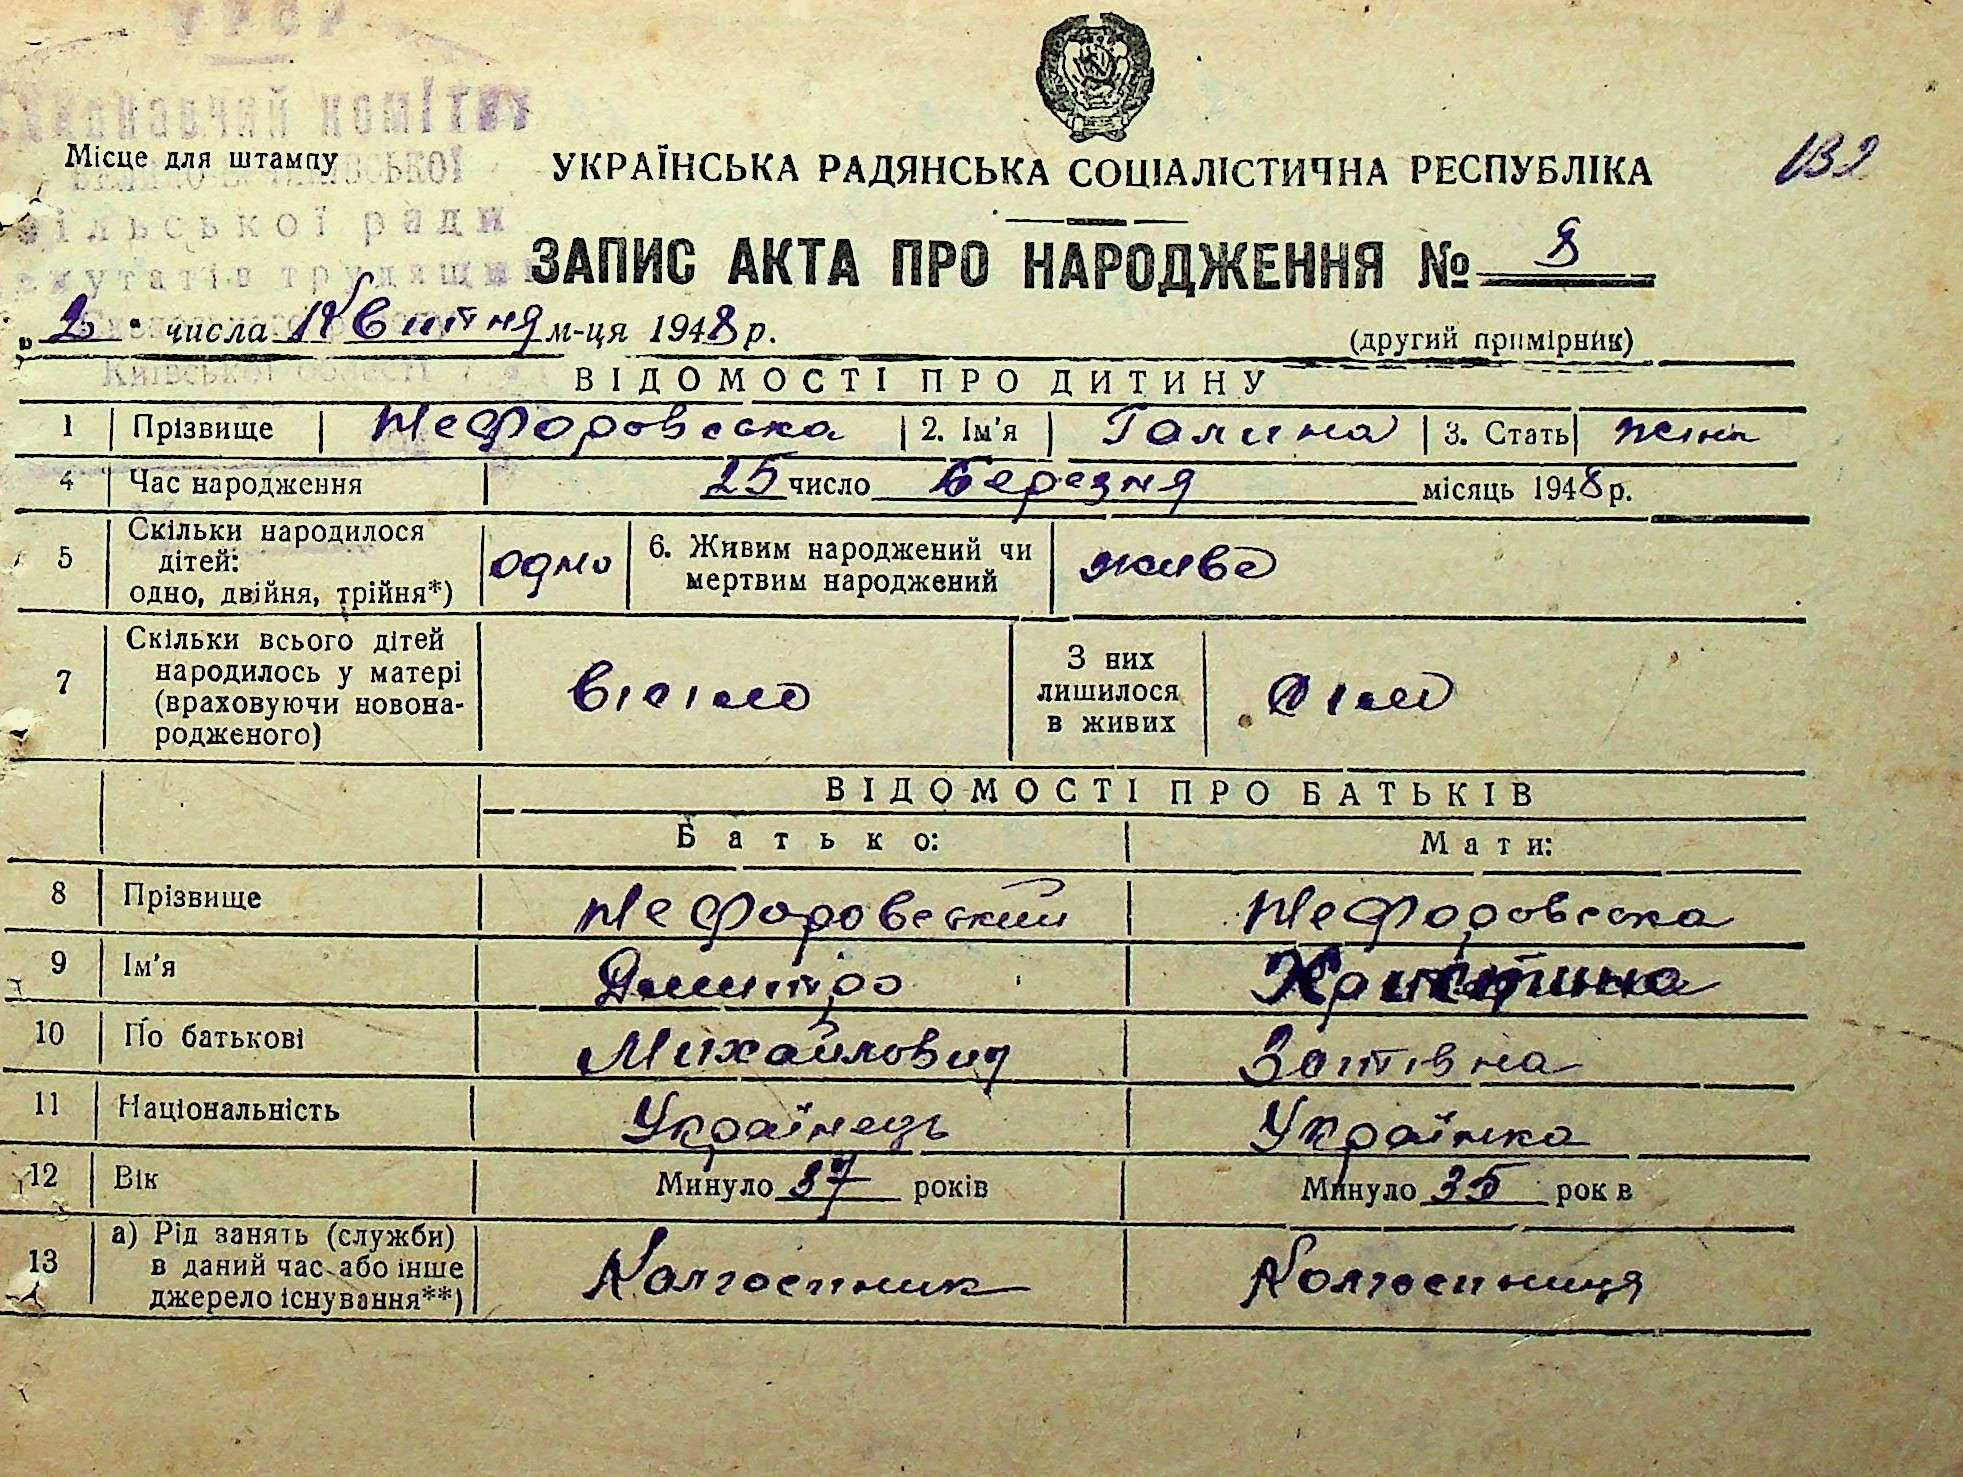 УРСР
Виконавчий комітет
сільської ради
депутатів трудящих
Київської області
Місце для штампу
УКРАЇНСЬКА РАДЯНСЬКА СОЦІАЛІСТИЧНА РЕСПУБЛІКА
132
ЗАПИС АКТА ПРО НАРОДЖЕННЯ № 8
„2" числа Квітня м-ця 1948 р.
(другий примірник)
ВІДОМОСТІ ПРО ДИТИНУ
1 Прізвище Нефоровська 2. Ім'я Галина 3. Стать жіна
4 Час народження 25 число Березня місяць 1948 р.
5 Скільки народилося дітей: одно, двійня, трійня*) одно 6. Живим народжений чи мертвим народжений живе
7 Скільки всього дітей народилось у матері (враховуючи новонародженого) вісім З них лишилося в живих сім
ВІДОМОСТІ ПРО БАТЬКІВ
Батько: Мати:
8 Прізвище Нефоровський Нефоровська
9 Ім'я Дмитро Христина
10 По батькові Михайлович Зотівна
11 Національність Українець Українка
12 Вік Минуло 37 років Минуло 35 рок в
13 а) Рід занять (служби) в даний час або інше джерело існування**) Колгоспник Колгоспниця